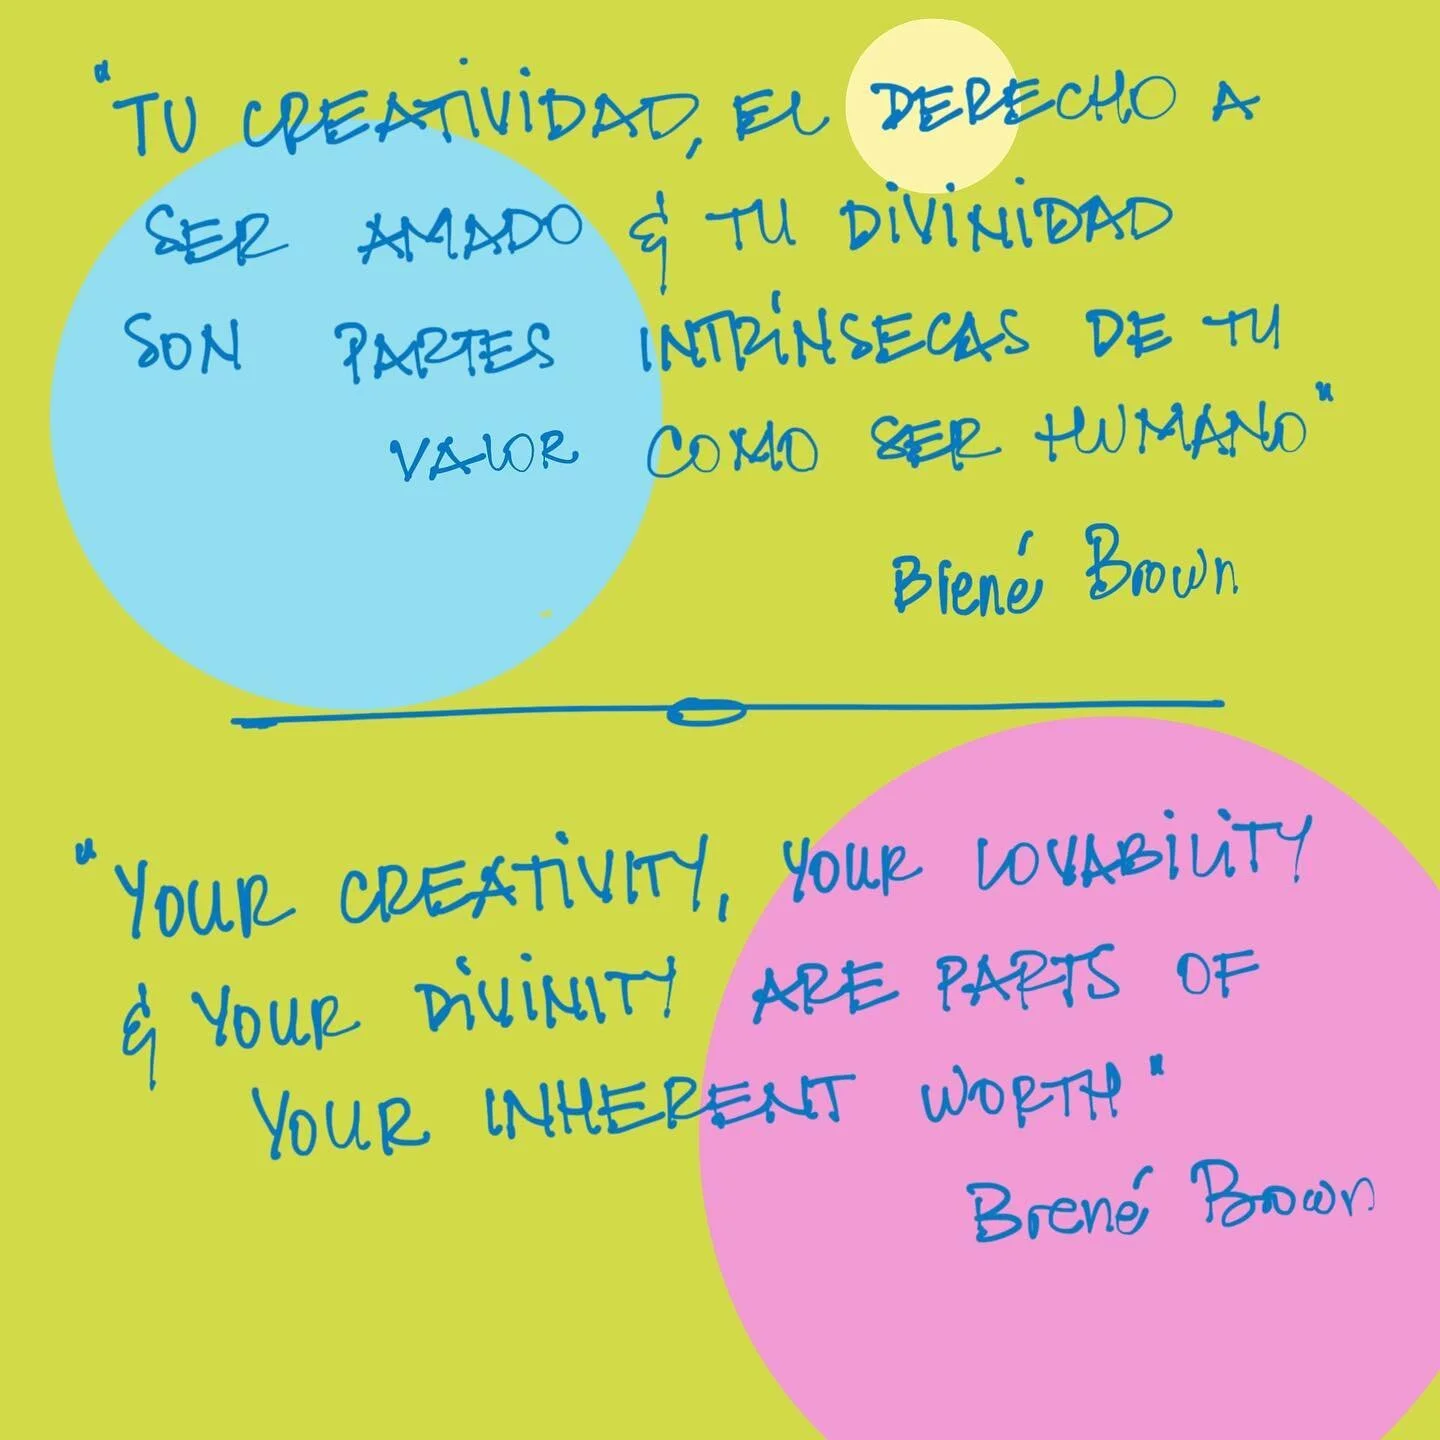 "TU CREATIVIDAD, EL DERECHO A
SER AMADO & TU DIVINIDAD
SON PARTES INTRÍNSECAS DE TU
VALOR COMO SER HUMANO"
Brené Brown
"YOUR CREATIVITY, YOUR LOVABILITY
& YOUR DIVINITY ARE PARTS OF
YOUR INHERENT WORTH"
Brené Brown